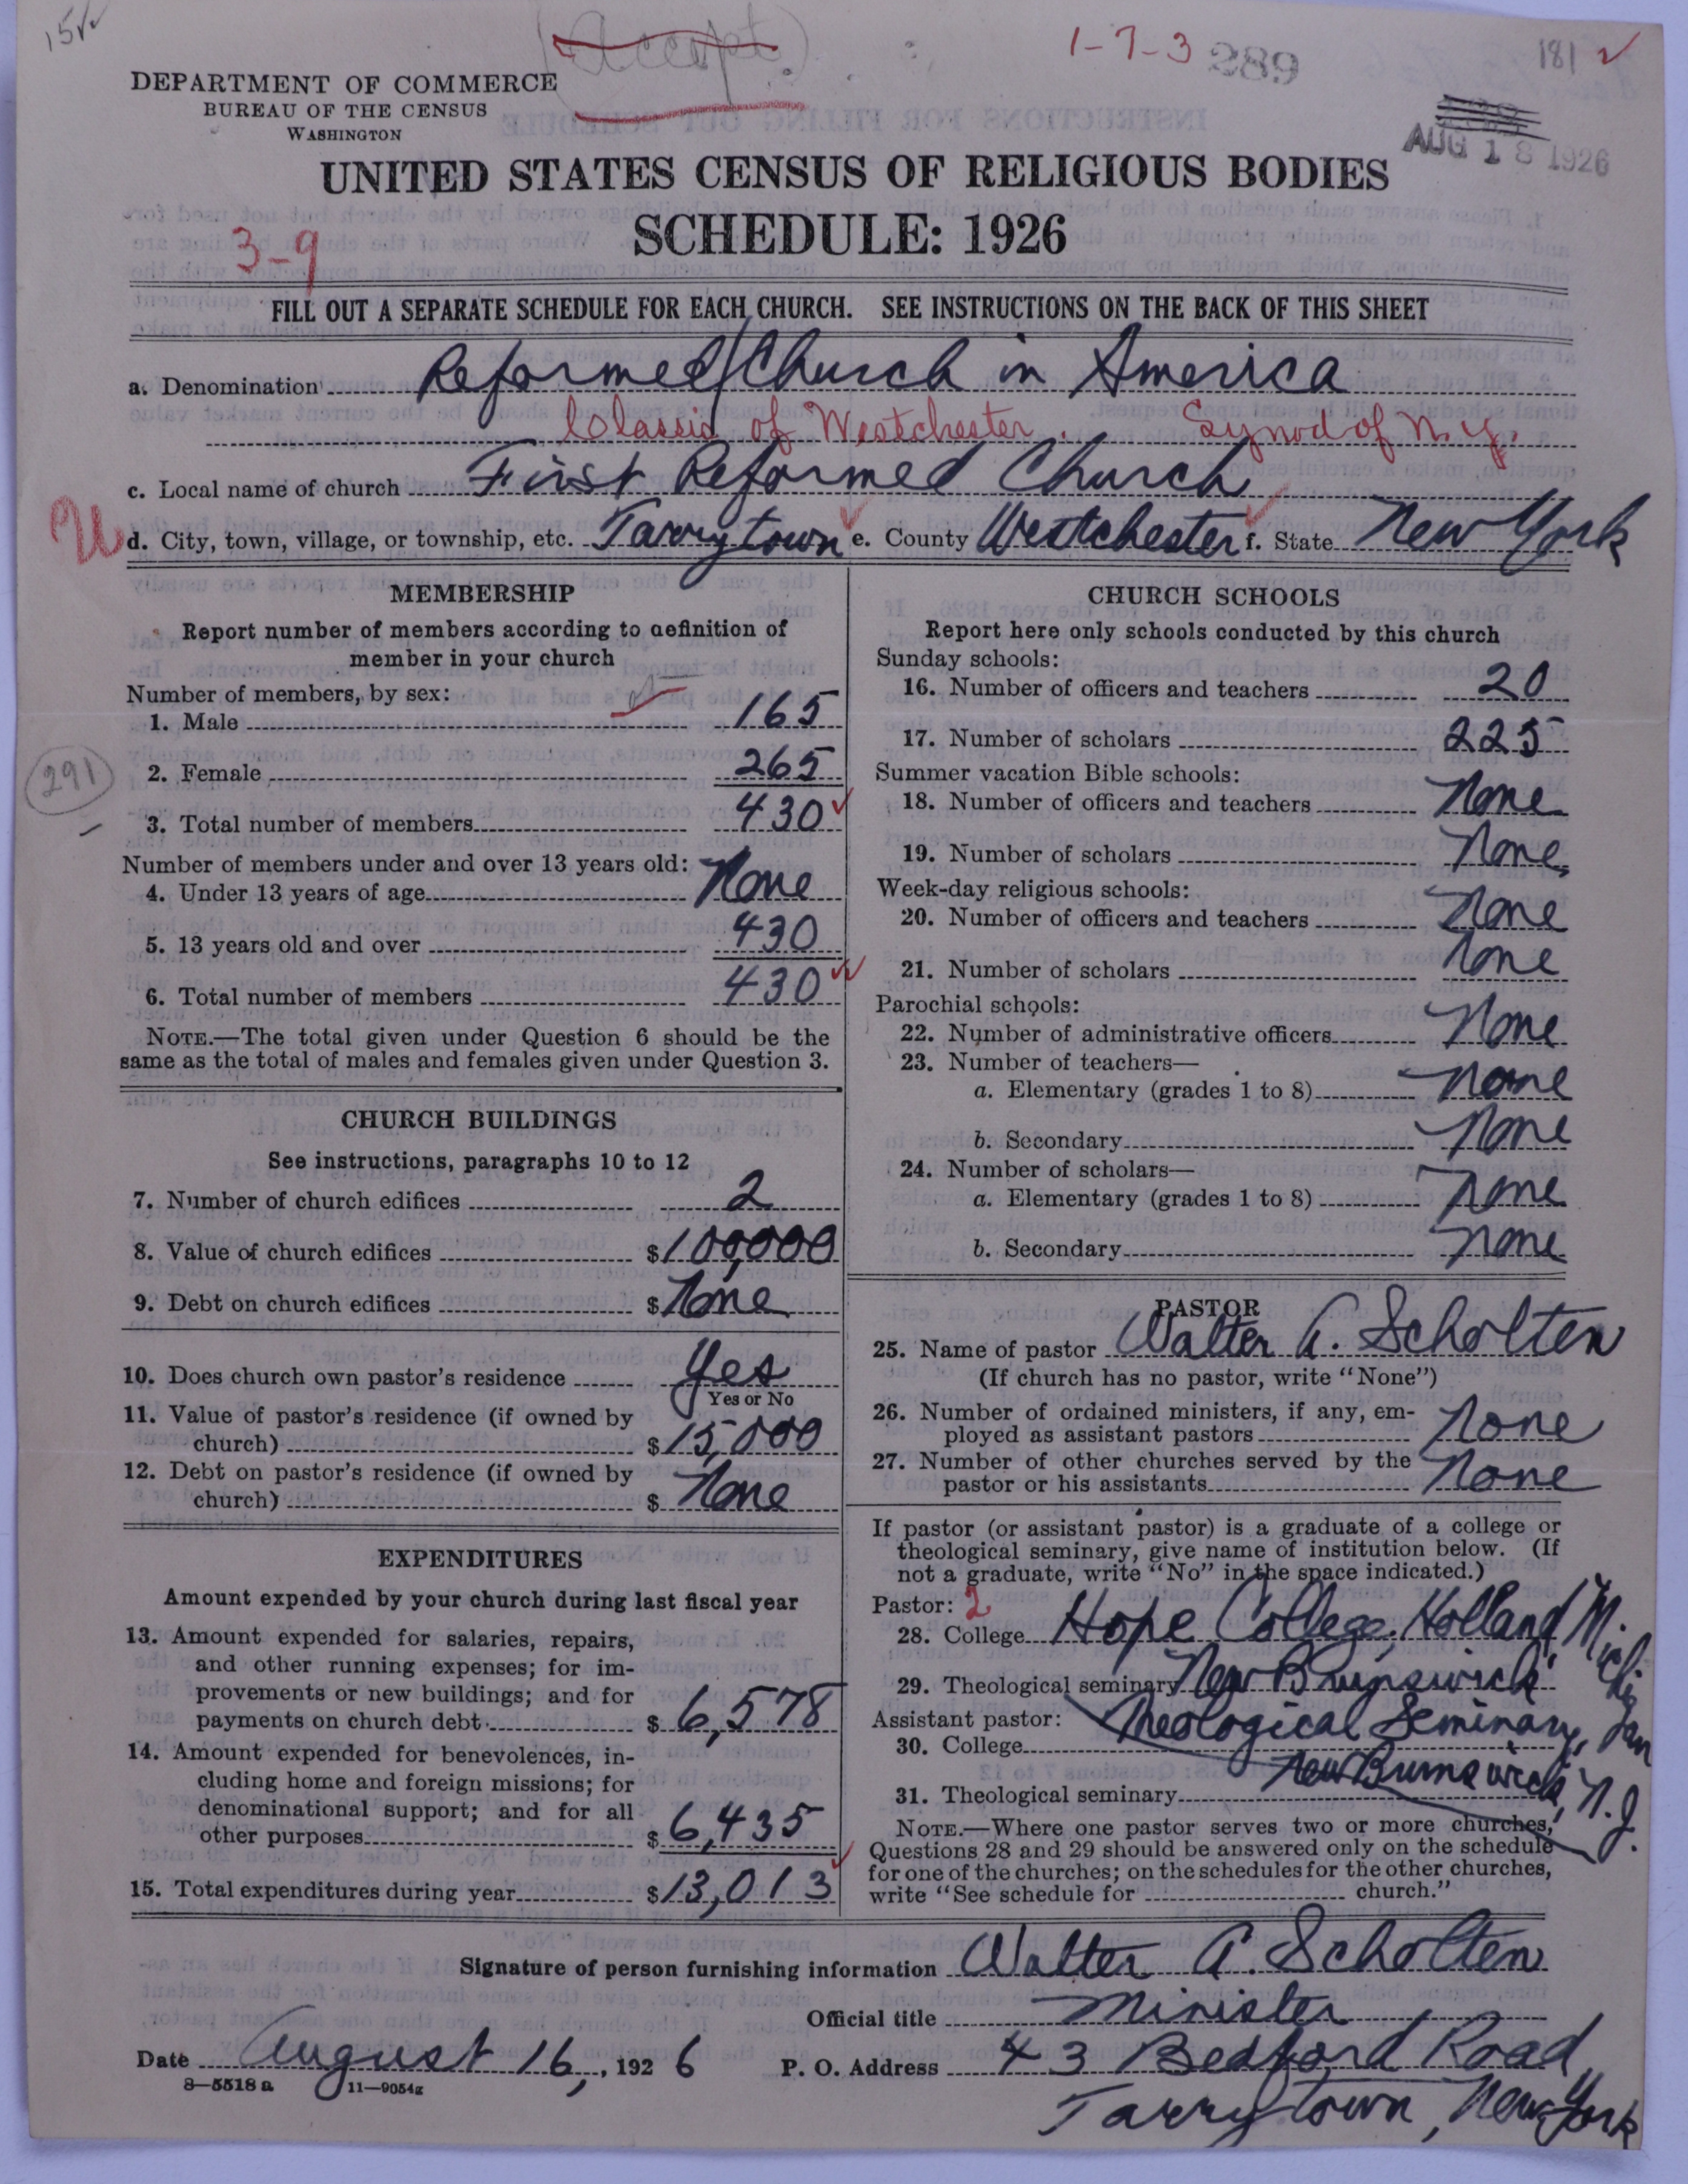 15
(Accept)
1-7-3 289
181
DEPARTMENT OF COMMERCE
BUREAU OF THE CENSUS
WASHINGTON
AUG 18 1926
UNITED STATES CENSUS OF RELIGIOUS BODIES
SCHEDULE: 1926
3-9
FILL OUT A SEPARATE SCHEDULE FOR EACH CHURCH. SEE INSTRUCTIONS ON THE BACK OF THIS SHEET
a. Denomination Reformed Church in America
Classis of Westchester. Synod of N.Y.
c. Local name of church First Reformed Church
U d. City, town, village, or township, etc. Tarrytown e. County Westchester f. State New York
MEMBERSHIP
Report number of members according to definition of
member in your church
Number of members, by sex:
1. Male 165
2. Female 265
291
3. Total number of members 430
Number of members under and over 13 years old:
4. Under 13 years of age None
5. 13 years old and over 430
6. Total number of members 430
NOTE.—The total given under Question 6 should be the
same as the total of males and females given under Question 3.
CHURCH BUILDINGS
See instructions, paragraphs 10 to 12
7. Number of church edifices 2
8. Value of church edifices $100,000
9. Debt on church edifices $None
10. Does church own pastor's residence Yes
Yes or No
11. Value of pastor's residence (if owned by
church) $15,000
12. Debt on pastor's residence (if owned by
church) $ None
EXPENDITURES
Amount expended by your church during last fiscal year
13. Amount expended for salaries, repairs,
and other running expenses; for im-
provements or new buildings; and for
payments on church debt $ 6,578
14. Amount expended for benevolences, in-
cluding home and foreign missions; for
denominational support; and for all
other purposes $6,435
15. Total expenditures during year $13,013
CHURCH SCHOOLS
Report here only schools conducted by this church
Sunday schools:
16. Number of officers and teachers 20
17. Number of scholars 225
Summer vacation Bible schools:
18. Number of officers and teachers None
19. Number of scholars None
Week-day religious schools:
20. Number of officers and teachers None
21. Number of scholars None
Parochial schools:
22. Number of administrative officers None
23. Number of teachers—
a. Elementary (grades 1 to 8) None
b. Secondary None
24. Number of scholars—
a. Elementary (grades 1 to 8) None
b. Secondary None
PASTOR
25. Name of pastor Walter A. Scholten
(If church has no pastor, write "None")
26. Number of ordained ministers, if any, em-
ployed as assistant pastors None
27. Number of other churches served by the
pastor or his assistants None
If pastor (or assistant pastor) is a graduate of a college or
theological seminary, give name of institution below. (If
not a graduate, write "No" in the space indicated.)
Pastor: 2
28. College Hope College, Holland, Michigan
29. Theological seminary New Brunswick
Assistant pastor: Theological Seminary,
30. College
New Brunswick, N.J.
31. Theological seminary
NOTE.—Where one pastor serves two or more churches,
Questions 28 and 29 should be answered only on the schedule
for one of the churches; on the schedules for the other churches,
write "See schedule for church."
Signature of person furnishing information Walter A. Scholten
Official title Minister
Date August 16, 1926 P. O. Address 43 Bedford Road,
8—5518 a 11—9054g
Tarrytown, New York